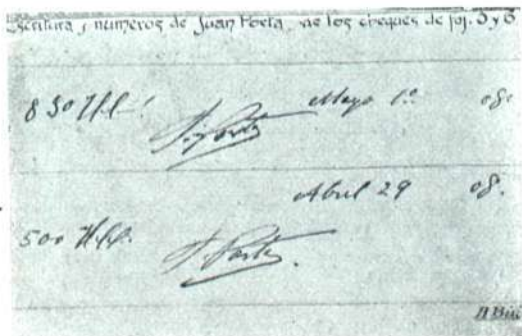 Escritura y numeros de Juan Porta, de los cheques de foj. 5 y 6
850 Mayo 1º 08.
J. Porta
Abril 29 08.
500
J. Porta.